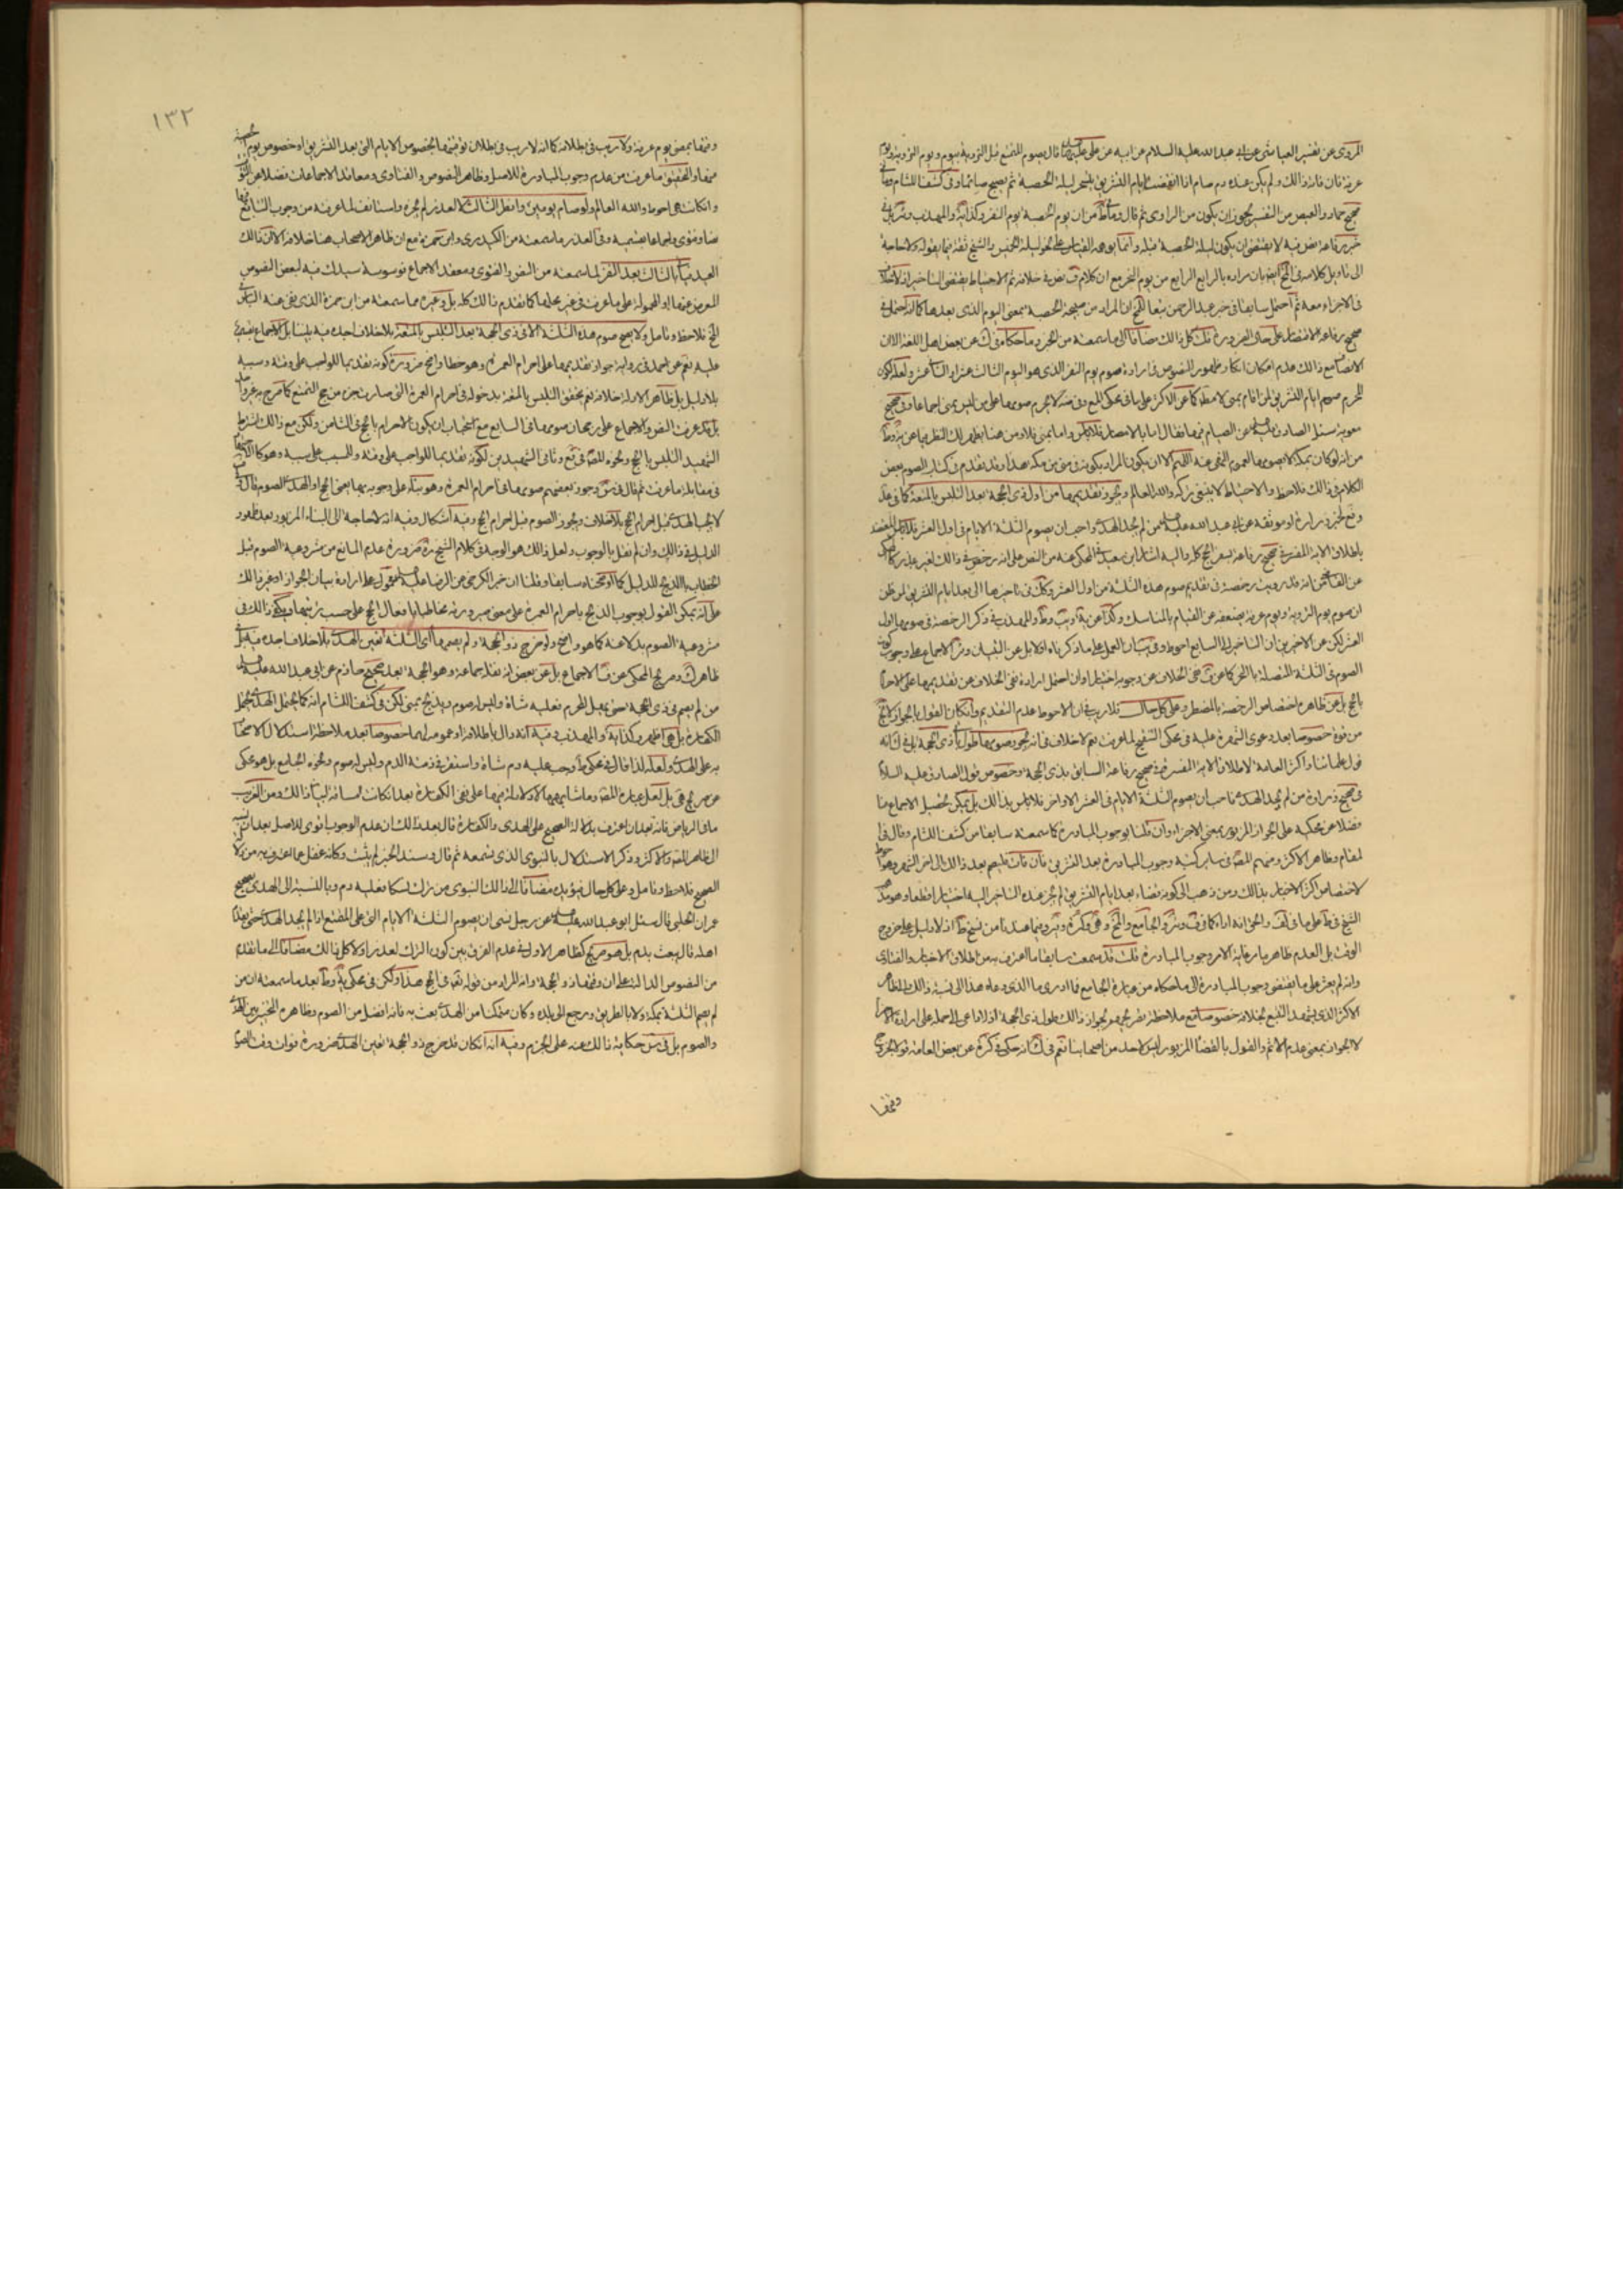 المروي عن تفسير العياشي عن ابي عبد الله عليه السلام عن ابيه عن علي قال يصوم المتمتع قبل التروية بيوم ويوم التروية ويوم
عرفة فان فاته ذالك ولم يكن عنده دم صام اذا انقضت ايام التشريق يتسحر ليلة الحصبة ثم يصبح صائما وفي كشف اللثام
صحيح حماد والعيص من التفسير يجوز ان يكون من الراوي ثم قال من ان يوم الحصبة يوم النفر والمهذب
خبر رفاعة نص فيه لا يقتضي ان يكون ليلة الحصبة قبله وانما يوهمه القياس على نحو ليلة الخميس والشيخ ثقة فيما يقوله ولا حاجة
الى تاويل كلامه في بان مراده بالرابع الرابع من يوم النحر مع ان كلام نص في خلافه ثم الاحتياط يقتضي التاخير اذ لا خلاف
في الاجزاء معه ثم احتمل سابقا في خبر عبد الرحمن تبعا ان المراد من صبيحة الحصبة بمعنى اليوم الذي بعدها كما انه احتمل في
صحيح رفاعة الاقتصار على حال الضرورة قلت كل ذالك مضافا الى ما سمعته من الخبر وما حكاه في عن بعض اهل اللغة الا ان
الانصاف مع ذالك عدم امكان انكار ظهور النصوص في ارادة صوم يوم النفر الذي هو اليوم الثالث عشر او الثاني عشر ولعله لكون
المحرم صوم ايام التشريق لمن اقام بمنى لا مطلقا كما عن الاكثر على ما في محكي المعتبر وفي لا يحرم صومها على من ليس بمنى اجماعا وفي صحيح
معوية سئل الصادق عن الصيام فيها فقال اما بالامصار فلا باس واما بمنى فلا ومن هنا يظهر لك النظر فيما عن
من انه لو كان بمكة لا يصومها لعموم النهي عنه اللهم الا ان يكون المراد بكونه في منى من مكة هذا وقد تقدم في كتاب الصوم بعض
الكلام في ذالك فلاحظ والاحتياط لا ينبغي تركه والله العالم ويجوز تقديمها من اول ذي الحجة بعد التلبس بالمتعة كما في
وقع لخبر زرارة او موثقه عن ابي عبد الله من لم يجد الهدي واحب ان يصوم الثلثة الايام في اول العشر فلا باس
باطلاق الاية المفسرة في صحيح رفاعة بشهر الحج كله واليه اشار ابن سعيد في المحكي عنه من النص على انه رخص في ذالك لغير عذر
عن انه قد رويت رخصة في تقديم صوم هذه الثلثة من اول العشر وكذلك في تاخيرها الى بعد ايام التشريق لمن ظن
ان صوم يوم التروية ويوم عرفة يضعفه عن القيام بالمناسك وكذا عن والمهذب ذكر الرخصة في صومها اول
العشر لكن عن الاخيرين ان التاخير الى السابع احوط وفي التبيان العمل على ما ذكرناه اولا بل عن التبيان الاجماع على وجوب كون
الصوم في الثلثة المتصلة بالنحر كما عن نفي الخلاف عن وجوبه اختيارا وان احتمل ارادة نفي الخلاف عن تقديمها على الاحرام
بالحج بل عن ظاهره اختصاص الرخصة بالمضطر وعلى كل حال فلا ريب في ان الاحوط عدم التقديم وان كان القول بالجواز لا
من قوة خصوصا بعد دعوى الشهرة عليه في محكي التنقيح لما عرفت نعم لا خلاف في انه يجوز صومها طول ذي الحجة بل في انه
قول علمائنا واكثر العامة لاطلاق الاية المفسرة في صحيح رفاعة السابق بذي الحجة وخصوص قول الصادق عليه السلام
في صحيح زرارة من لم يجد الهدي فاحب ان يصوم الثلثة الايام في العشر الاواخر فلا باس بذالك بل يمكن تحصيل الاجماع هنا
فضلا عن محكيه على الجواز المزبور بمعنى الاجزاء وان قلنا بوجوب المبادرة كما سمعته سابقا من كشف اللثام وقال في
المقام وظاهر الاكثر ومنهم المصنف في ساير كتبه وجوب المبادرة بعد التشريق فان فات فليصم بعد ذالك الى اخر الشهر وهو احوط
لاختصاص اكثر الاخبار بذالك ومن ذهب الى كونه قضاء بعد ايام التشريق لم يجز عنده التاخير اليه اختيارا قطعا وهو مذهب
الشيخ في على ما في والحق انه اداء كما في والجامع وفيما عندنا من نسخ اذ لا دليل على خروج
الوقت بل العدم ظاهر ما رعاية الامر وجوب المبادرة قلت قد سمعت سابقا ما اعترف به من اطلاق الاخبار والفتاوى
وانه لم يعثر على ما يقتضي وجوب المبادرة الى ما حكاه من عبارة الجامع فما ادري ما الذي دعاه هذا الى نسبة ذالك لظاهر
الاكثر الذي يشهد التتبع بخلافه خصوصا مع ملاحظة تصريحهم بجواز ذالك طول ذي الحجة اذ لا داعي الى حمله على ارادة الاجزاء
لا الجواز بمعنى عدم الاثم والقول بالقضا المزبور ليس لاحد من اصحابنا نعم في انه حكي في كره عن بعض العامة قولا بخروج
وقتها
١٣٢
وقتها بمضي يوم عرفة ولا ريب في بطلانه كما انه لا ريب في بطلان توقيتها بخصوص الايام التي بعد التشريق او خصوص يوم الحصبة
منها والتحقيق ما عرفت من عدم وجوب المبادرة للاصل وظاهر النصوص والفتاوى ومعاقد الاجماعات فضلا عن
وان كانت هي احوط والله العالم ولو صام يومين وافطر الثالث لا لعذر لم يجزه واستانف لما عرفته من وجوب التتابع فيها
نصا وفتوى واجماعا بقسميه وفي العذر ما سمعته من الكيدري وابن حمزة مع ان ظاهر الاصحاب هنا خلافه الا ان ذالك
العيد فياتي بالثالث بعد النفر لما سمعته من النص والفتوى ومعقد الاجماع فوسوسة سيدك فيه لبعض النصوص
المعرض عنها او المحمولة على ما عرفت في غير محلها كما تقدم ذالك كله بل وغيره مما سمعته من ابن حمزة الذي نفى عنه الباس
الخ فلاحظ وتامل ولا يصح صوم هذه الثلثة الا في ذي الحجة بعد التلبس بالمتعة بلا خلاف اجده فيه بيننا بل الاجماع بقسميه
عليه نعم عن احمد في رواية جواز تقديمها على احرام العمرة وهو خطأ واضح ضرورة كونه تقديما للواجب على وقته وسببه
بلا دليل بل ظاهر الادلة خلافه نعم يتحقق التلبس بالمتعة بدخوله في احرام العمرة التي صارت جزء من حج التمتع كما صرح به غير واحد
بل قد عرفت النص والاجماع على رجحان صومها في السابع مع استحباب ان يكون الاحرام بالحج في الثامن ولكن مع ذالك اشترط
الشهيد التلبس بالحج ونحوه المصنف في وثاني الشهيدين لكونه تقديما للواجب على وقته والتسبب على سببه وهو كالاجتهاد
في مقابلة ما عرفت ثم قال في وجوز بعضهم صومها في احرام العمرة وهو بناء على وجوبه بها بمعنى الحج او الهدي او الصوم قال في
لا يجب الهدي قبل احرام الحج بلا خلاف ويجوز الصوم قبل احرام الحج وفيه اشكال وفيه انه لا حاجة الى البناء المزبور بعد ظهور
الدليل في ذالك وان لم نقل بالوجوب ولعل ذالك هو الوجه في كلام الشيخ ضرورة عدم المانع من مشروعية الصوم قبل
الخطاب بالذبح للدليل كما اوضحناه سابقا وقلنا ان خبر الكرخي عن الرضا محمول على ارادة بيان الجواز او غير ذالك
على انه يمكن القول بوجوب الذبح باحرام العمرة على معنى صيرورته مخاطبا بافعال الحج على حسب ترتيبها ويكفي ذالك في
مشروعية الصوم بدلا عنه كما هو واضح ولو خرج ذو الحجة ولم يصمها اي الثلثة تعين الهدي بلا خلاف اجده فيه بل في
ظاهر وصريح المحكي عن الاجماع بل عن بعض انه نقله جماعة وهو الحجة بعد صحيح حازم عن ابي عبد الله
من لم يصم في ذي الحجة حتى يهل المحرم فعليه شاة وليس له صوم ويذبح بمنى لكن في كشف اللثام انه كما يحتمل الهدي يحتمل
الكفارة بل هي اظهر وكذا والمهذب وفيه انه دال باطلاقه او عمومه لهما خصوصا بعد ملاحظة استدلال الاصحاب
به على الهدي ولعله لذا قال في محكي وجب عليه دم شاة واستقر في ذمته الدم وليس له صوم ونحوه الجامع بل هو محكي
عن صريح بل لعل عبارة المصنف وما شابهها لا دلالة فيها على نفي الكفارة بعد ان كانت مساقة لبيان ذالك ومن الغريب
ما في الرياض فانه بعد ان اعترف بدلالة الصحيح على الهدي والكفارة قال بعد ذالك ان عدم الوجوب اقوى للاصل بعد ان نسبه
الى ظاهر المصنف والاكثر وذكر الاستدلال بالنبوي الذي تسمعه ثم قال وسند الخبر لم يثبت وكانه غفل عما اعترف به من دلالة
الصحيح فلاحظ وتامل وعلى كل حال فيؤيده مضافا الى ذالك النبوي من ترك نسكا فعليه دم وبالنسبة الى الهدي صحيح
عمران الحلبي قال سئل ابو عبد الله عن رجل نسي ان يصوم الثلثة الايام التي على المتمتع اذا لم يجد الهدي حتى يقدم
اهله قال يبعث بدم بل هو صريح كظاهر الاول في عدم الفرق بين كون الترك لعذر او لا كل ذالك مضافا الى ما تقدم
من النصوص الدالة على ان وقتها ذو الحجة وانه المراد من قوله تعالى في الحج هذا ولكن في محكي بعد ما سمعته ان من
لم يصم الثلثة بمكة ولا بالطريق ورجع الى بلده وكان متمكنا من الهدي بعث به فانه افضل من الصوم وظاهره التخيير بين الهدي
والصوم بل في حكاية ذالك عنه على الجزم وفيه انه ان كان قد خرج ذو الحجة تعين الهدي ضرورة فوات وقت الصوم